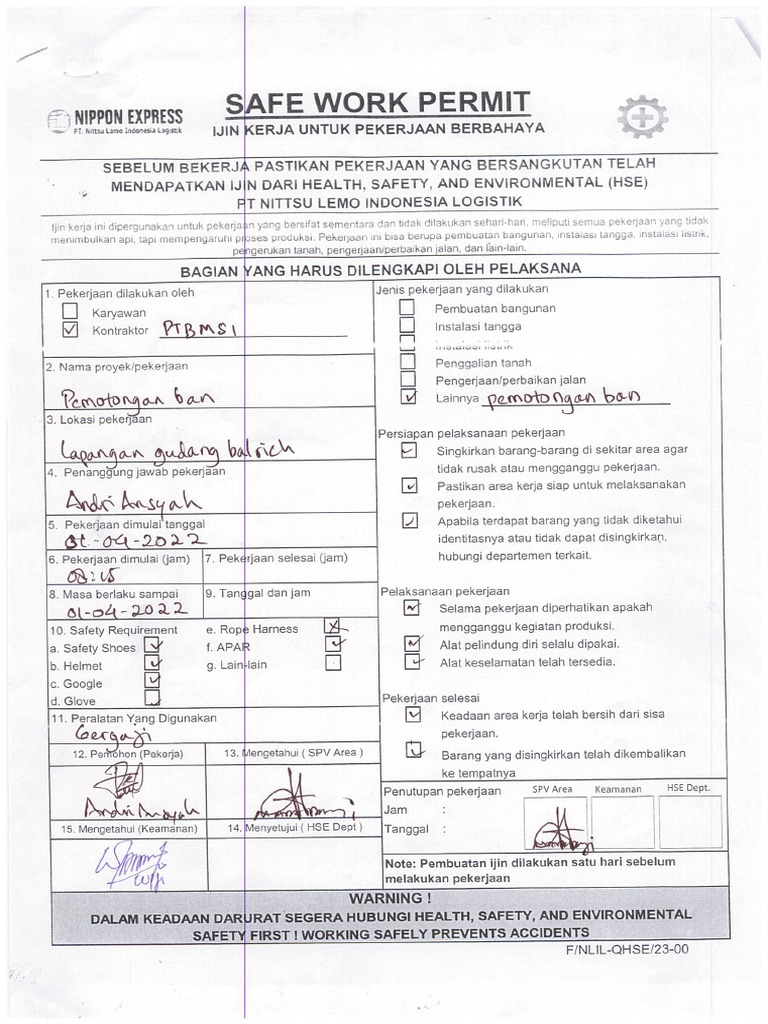 NIPPON EXPRESS
PT. Nittsu Lemo Indonesia Logistik
SAFE WORK PERMIT
IJIN KERJA UNTUK PEKERJAAN BERBAHAYA
SEBELUM BEKERJA PASTIKAN PEKERJAAN YANG BERSANGKUTAN TELAH
MENDAPATKAN IJIN DARI HEALTH, SAFETY, AND ENVIRONMENTAL (HSE)
PT NITTSU LEMO INDONESIA LOGISTIK
Ijin kerja ini dipergunakan untuk pekerjaan yang bersifat sementara dan tidak dilakukan sehari-hari, meliputi semua pekerjaan yang tidak
menimbulkan api, tapi mempengaruhi proses produksi. Pekerjaan ini bisa berupa pembuatan bangunan, instalasi tangga, instalasi listrik,
pengerukan tanah, pengerjaan/perbaikan jalan, dan lain-lain.
BAGIAN YANG HARUS DILENGKAPI OLEH PELAKSANA
1. Pekerjaan dilakukan oleh
Karyawan
Kontraktor PTBMSI
2. Nama proyek/pekerjaan
Pemotongan ban
3. Lokasi pekerjaan
Lapangan gudang balrich
4. Penanggung jawab pekerjaan
Andri Ansyah
5. Pekerjaan dimulai tanggal
01-04-2022
6. Pekerjaan dimulai (jam)
08:15
7. Pekerjaan selesai (jam)
8. Masa berlaku sampai
01-04-2022
9. Tanggal dan jam
10. Safety Requirement
a. Safety Shoes
b. Helmet
c. Google
d. Glove
e. Rope Harness
f. APAR
g. Lain-lain
11. Peralatan Yang Digunakan
Gergaji
12. Pemohon (Pekerja)
Andri Ansyah
13. Mengetahui ( SPV Area )
15. Mengetahui (Keamanan)
14. Menyetujui ( HSE Dept )
Jenis pekerjaan yang dilakukan
Pembuatan bangunan
Instalasi tangga
Instalasi listrik
Penggalian tanah
Pengerjaan/perbaikan jalan
Lainnya pemotongan ban
Persiapan pelaksanaan pekerjaan
Singkirkan barang-barang di sekitar area agar
tidak rusak atau mengganggu pekerjaan.
Pastikan area kerja siap untuk melaksanakan
pekerjaan.
Apabila terdapat barang yang tidak diketahui
identitasnya atau tidak dapat disingkirkan,
hubungi departemen terkait.
Pelaksanaan pekerjaan
Selama pekerjaan diperhatikan apakah
mengganggu kegiatan produksi.
Alat pelindung diri selalu dipakai.
Alat keselamatan telah tersedia.
Pekerjaan selesai
Keadaan area kerja telah bersih dari sisa
pekerjaan.
Barang yang disingkirkan telah dikembalikan
ke tempatnya
Penutupan pekerjaan
Jam :
Tanggal :
SPV Area
Keamanan
HSE Dept.
Note: Pembuatan ijin dilakukan satu hari sebelum
melakukan pekerjaan
WARNING !
DALAM KEADAAN DARURAT SEGERA HUBUNGI HEALTH, SAFETY, AND ENVIRONMENTAL
SAFETY FIRST ! WORKING SAFELY PREVENTS ACCIDENTS
F/NLIL-QHSE/23-00